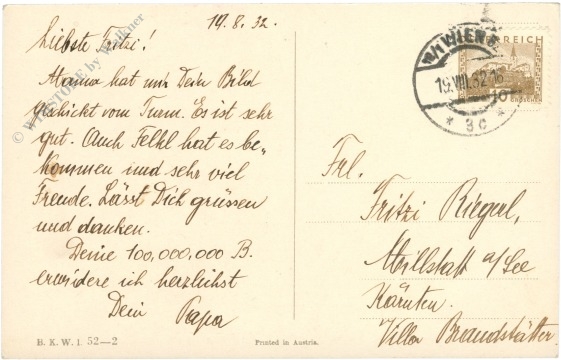 19.8.32.
Liebste Fritzi!
Mama hat mir Dein Bild
geschickt vom Turm. Es ist sehr
gut. Auch Felkl hat es be-
kommen und sehr viel
Freude. Lässt Dich grüssen
und danken.
Deine 100,000,000 B.
erwidere ich herzlichst
Dein Papa
B. K. W. I. 52—2
Printed in Austria.
WIEN
19.VIII.32
* 3c *
REICH
10
GROSCHEN
Frl.
Fritzi Riegerl,
Millstatt a/See
Kärnten.
Villa Brandstätter
© WPHSTORE by Wallner